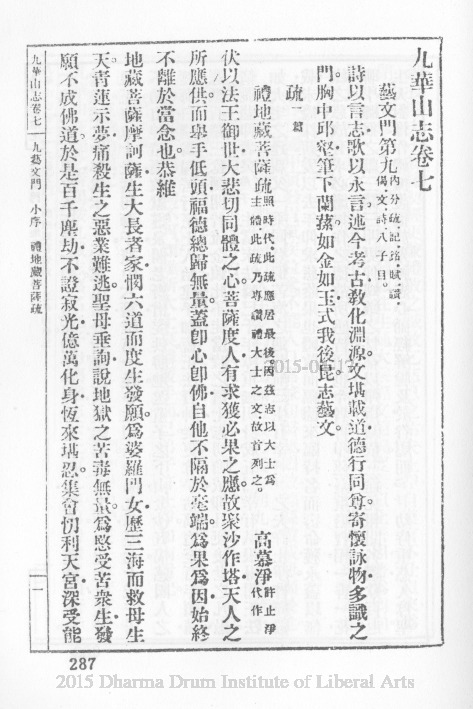 九華山志卷七
藝文門第九內分疏、記、銘、賦、讚、偈、文、詩、八子目。
詩以言志歌以永言。述今考古敎化淵源。文堪載道德行同尊寄懷詠物多識之
門。胸中邱壑筆下蘭蓀如金如玉式我後昆志藝文。
疏一篇
禮地藏菩薩疏照時代、此疏應居最後。因茲志以大士爲主體、此疏乃專讚禮大士之文、故首列之。高慕淨許止淨代作
伏以法王御世大悲切同體之心。菩薩度人有求獲必果之應。故聚沙作塔天人之
所應供而舉手低頭福德總歸無量。蓋卽心卽佛自他不隔於毫端。爲果爲因始終
不離於當念也。恭維
地藏菩薩摩訶薩生大長者家憫六道而度生發願。爲婆羅門女歷三海而救母生
天。靑蓮示夢痛殺生之惡業難逃。聖母垂詢說地獄之苦毒無量。爲愍受苦衆生發
願不成佛道。於是百千塵劫不證寂光。億萬化身恆來堪忍。集會忉利天宮深受能
九華山志卷七 九藝文門 小序 禮地藏菩薩疏 一
287
2015-0 1
2015 Dharma Drum Institute of Liberal Arts